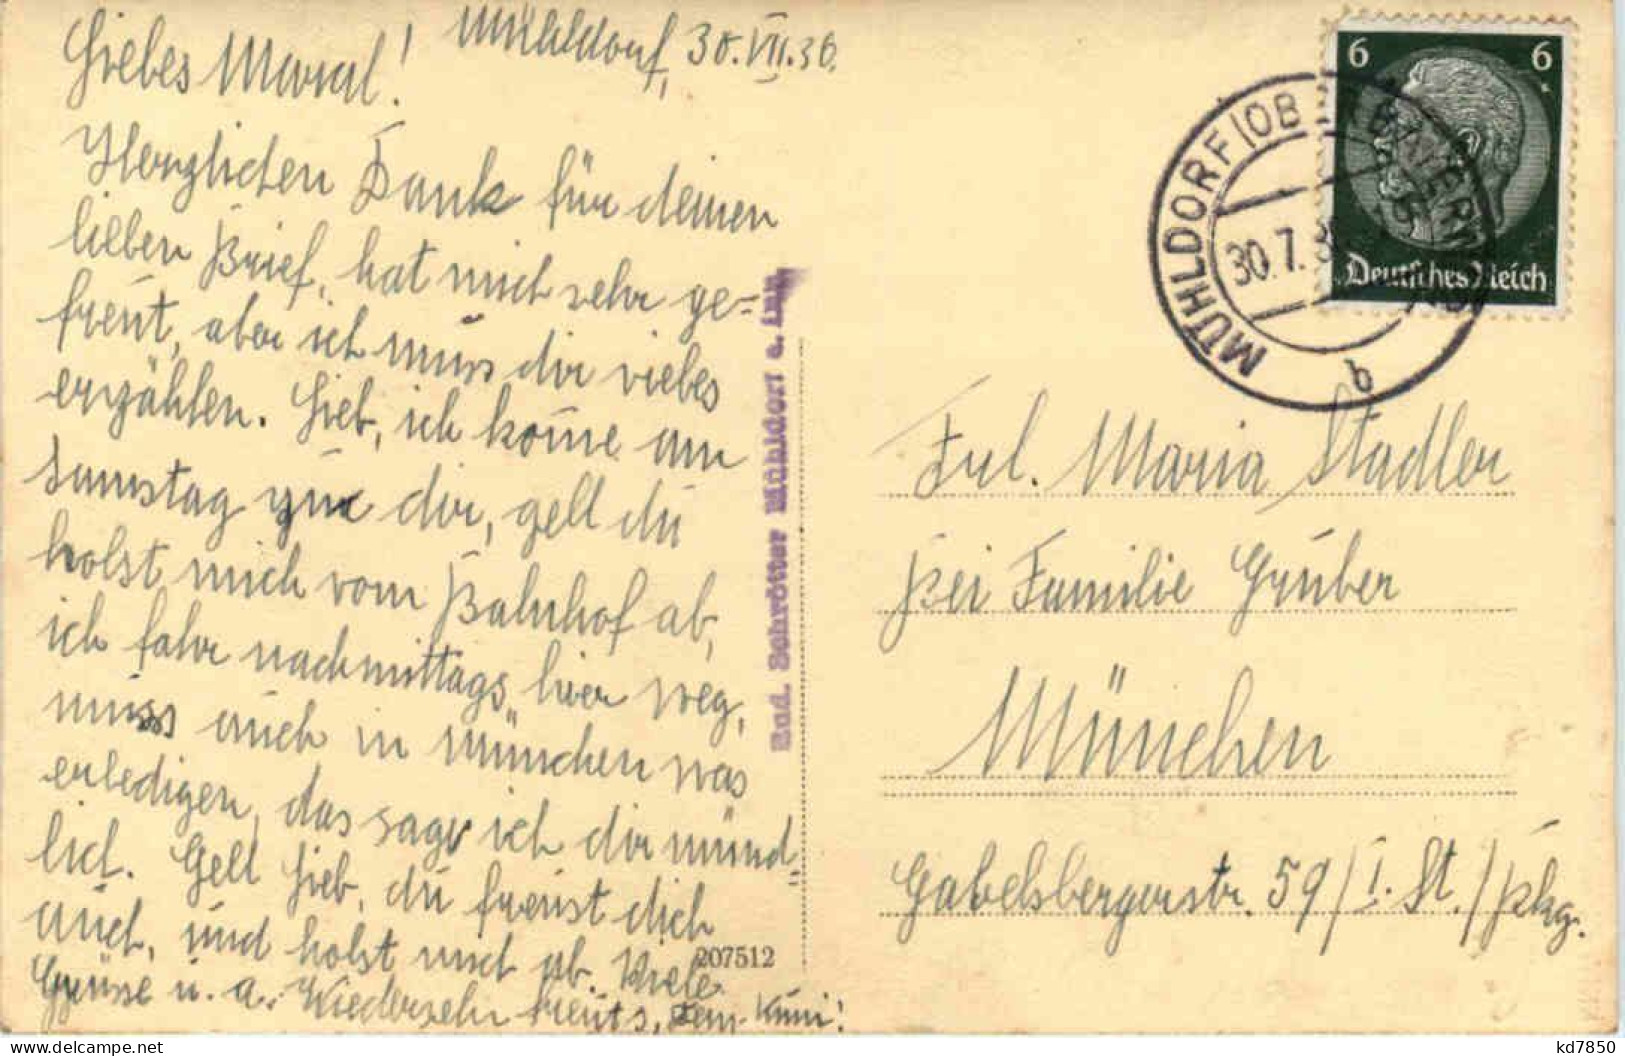 Mühldorf, 30.VII.36.
Liebes Maral!
Herzlichen Dank für deinen
lieben Brief, hat mich sehr ge=
freut, aber ich muss dir viebes
erzählen. Lieb, ich kom̄e am
Samstag zu dir, gell du
holst mich vom Bahnhof ab,
ich fahr nachmittags hier weg,
muss auch in München was
erledigen, das sage ich dir münd-
lich. Gell Lieb, du freust dich
auch, und holst mich ab. Viele
Grüsse u. a. Wiedersehn freut s.
207512
Rud. Schrötter Mühldorf a. Inn
6 6
Deutsches Reich
MÜHLDORF (OBERBAYERN)
30.7.3
b
Frl. Maria Stadler
bei Familie Gruber
München
Gabelsbergerstr. 59/I. St./
kd7850